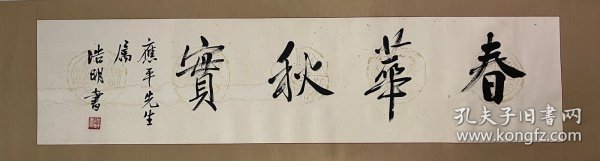 春華秋實
應平先生
属
浩明書
孔夫子旧书网
www.kongfz.com